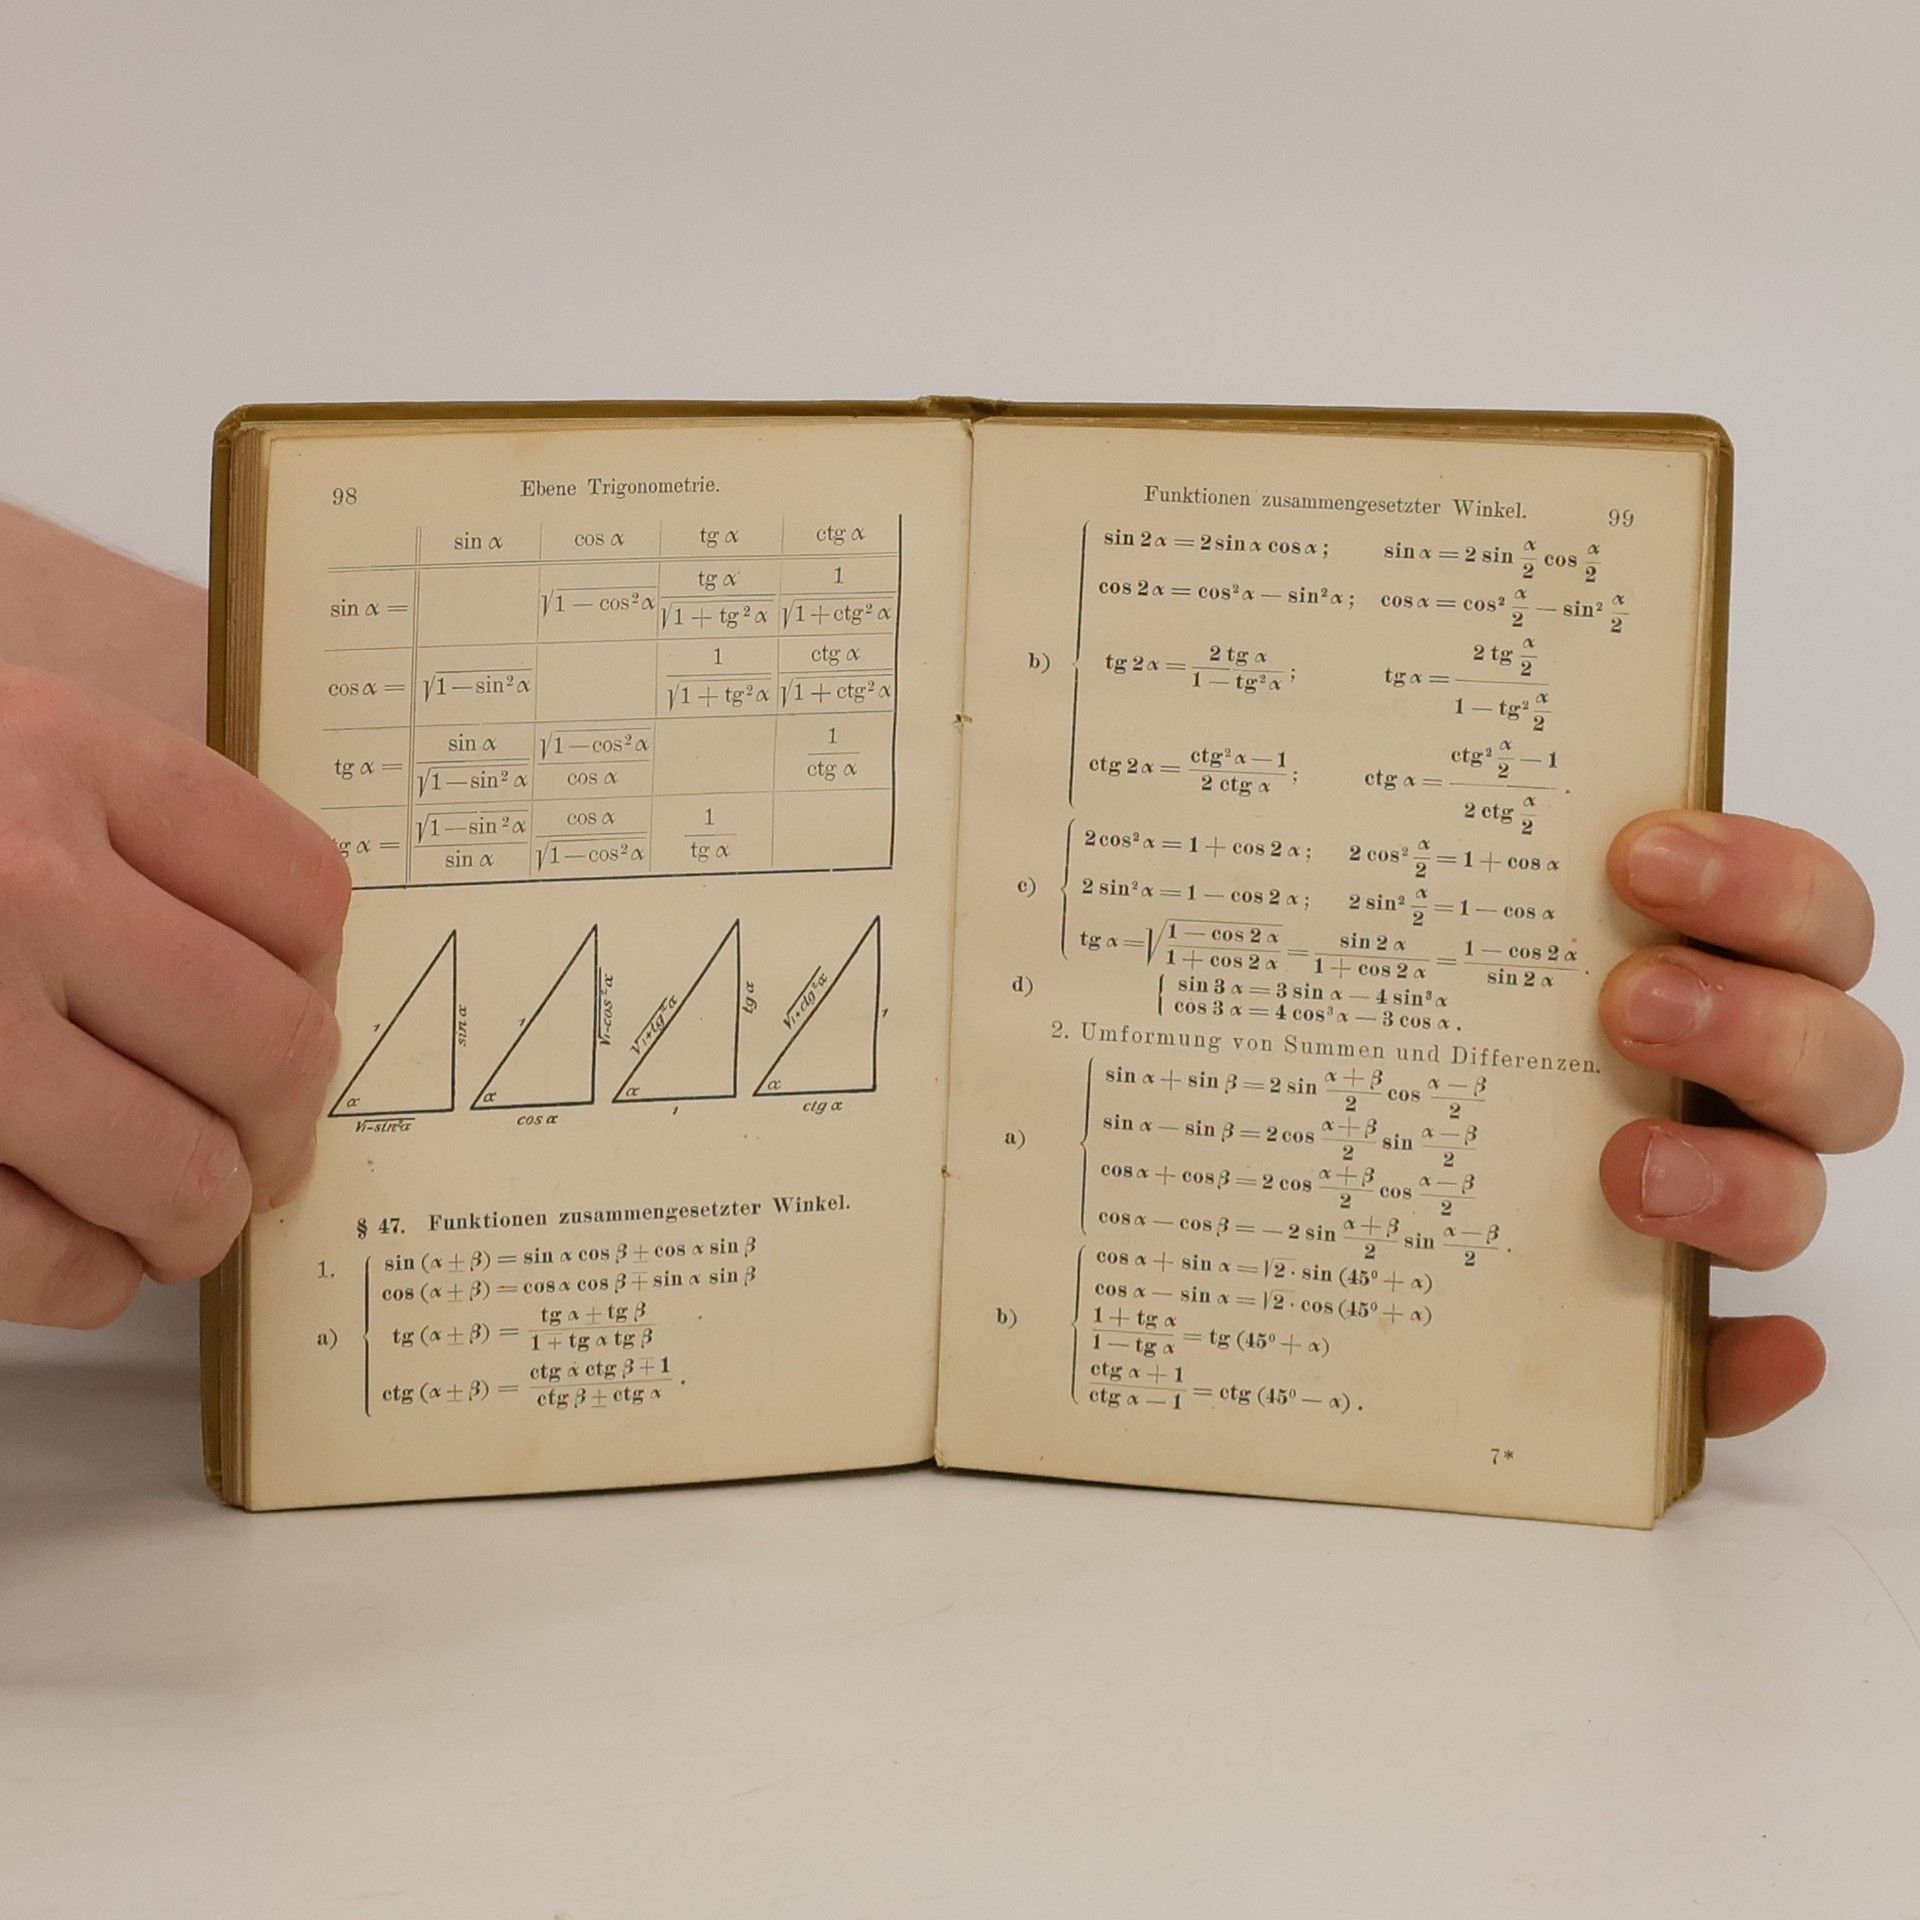 98 Ebene Trigonometrie.
sin α cos α tg α ctg α
sin α = √1 — cos²α tg α / √1 + tg²α 1 / √1 + ctg²α
cos α = √1 — sin²α 1 / √1 + tg²α ctg α / √1 + ctg²α
tg α = sin α / √1 — sin²α √1 — cos²α / cos α 1 / ctg α
tg α = √1 — sin²α / sin α cos α / √1 — cos²α 1 / tg α
1 sin α α √1-sin²α
1 √1-cos²α α cos α
√1+tg²α tg α α 1
√1+ctg²α 1 α ctg α
§ 47. Funktionen zusammengesetzter Winkel.
1. sin (α ± β) = sin α cos β ± cos α sin β
cos (α ± β) = cos α cos β ∓ sin α sin β
a) tg (α ± β) = tg α + tg β / 1 + tg α tg β
ctg (α ± β) = ctg α ctg β ∓ 1 / ctg β ± ctg α .
Funktionen zusammengesetzter Winkel. 99
sin 2α = 2 sin α cos α; sin α = 2 sin α/2 cos α/2
cos 2α = cos²α — sin²α; cos α = cos² α/2 — sin² α/2
b) tg 2α = 2 tg α / 1 — tg²α ; tg α = 2 tg α/2 / 1 — tg² α/2
ctg 2α = ctg²α — 1 / 2 ctg α ; ctg α = ctg² α/2 — 1 / 2 ctg α/2 .
2 cos²α = 1 + cos 2α; 2 cos² α/2 = 1 + cos α
c) 2 sin²α = 1 — cos 2α; 2 sin² α/2 = 1 — cos α
tg α = √1 — cos 2α / 1 + cos 2α = sin 2α / 1 + cos 2α = 1 — cos 2α / sin 2α .
d) sin 3α = 3 sin α — 4 sin³α
cos 3α = 4 cos³α — 3 cos α.
2. Umformung von Summen und Differenzen.
sin α + sin β = 2 sin α + β / 2 cos α — β / 2
a) sin α — sin β = 2 cos α + β / 2 sin α — β / 2
cos α + cos β = 2 cos α + β / 2 cos α — β / 2
cos α — cos β = — 2 sin α + β / 2 sin α — β / 2 .
cos α + sin α = √2 · sin (45⁰ + α)
cos α — sin α = √2 · cos (45⁰ + α)
b) 1 + tg α / 1 — tg α = tg (45⁰ + α)
ctg α + 1 / ctg α — 1 = ctg (45⁰ — α).
7*